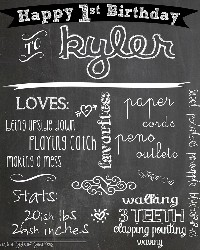 Happy 1st Birthday
to
kyler
LOVES:
being upside down
PLAYING CATCH
making a mess
favorites
paper
cords
pens
outlets
Stats:
20ish lbs
24ish inches
walking
3 TEETH
clapping pointing
waving